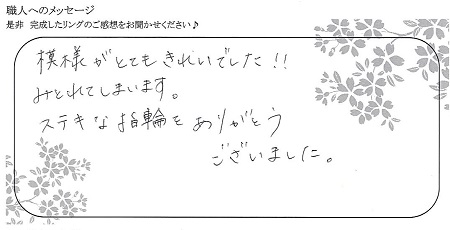 職人へのメッセージ
是非 完成したリングのご感想をお聞かせください♪
模様がとてもきれいでした!!
みとれてしまいます。
ステキな指輪をありがとう
ございました。